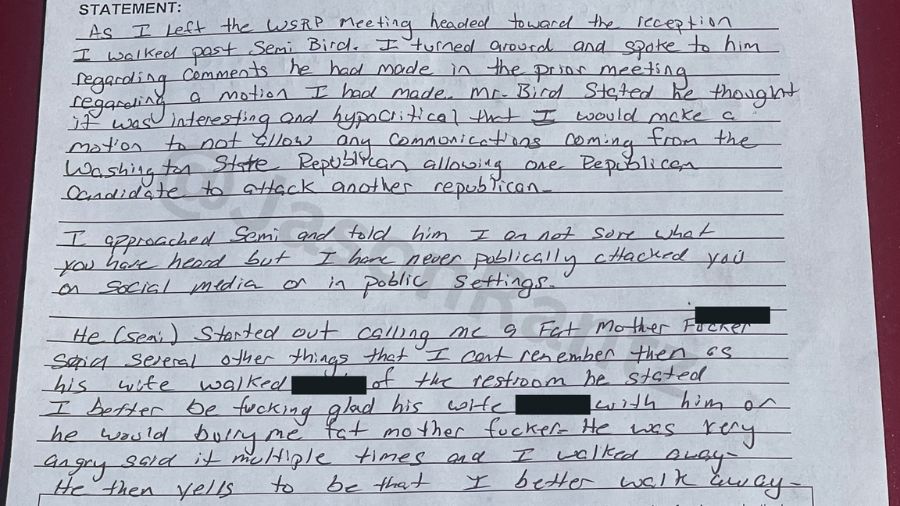 STATEMENT:
As I left the WSRP meeting headed toward the reception
I walked past Semi Bird. I turned around and spoke to him
regarding comments he had made in the prior meeting
regarding a motion I had made. Mr. Bird Stated he thought
it was interesting and hypocritical that I would make a
motion to not allow any communications coming from the
Washington State Republican allowing one Republican
Candidate to attack another republican.
I approached Semi and told him I am not sure what
you have heard but I have never publically attacked you
on social media or in public settings.
He (semi) started out calling me a Fat Mother Fucker
said several other things that I cant remember then as
his wife walked of the restroom he stated
I better be fucking glad his wife with him or
he would bury me fat mother fucker. He was very
angry said it multiple times and I walked away.
He then yells to be that I better walk away.
@Jason